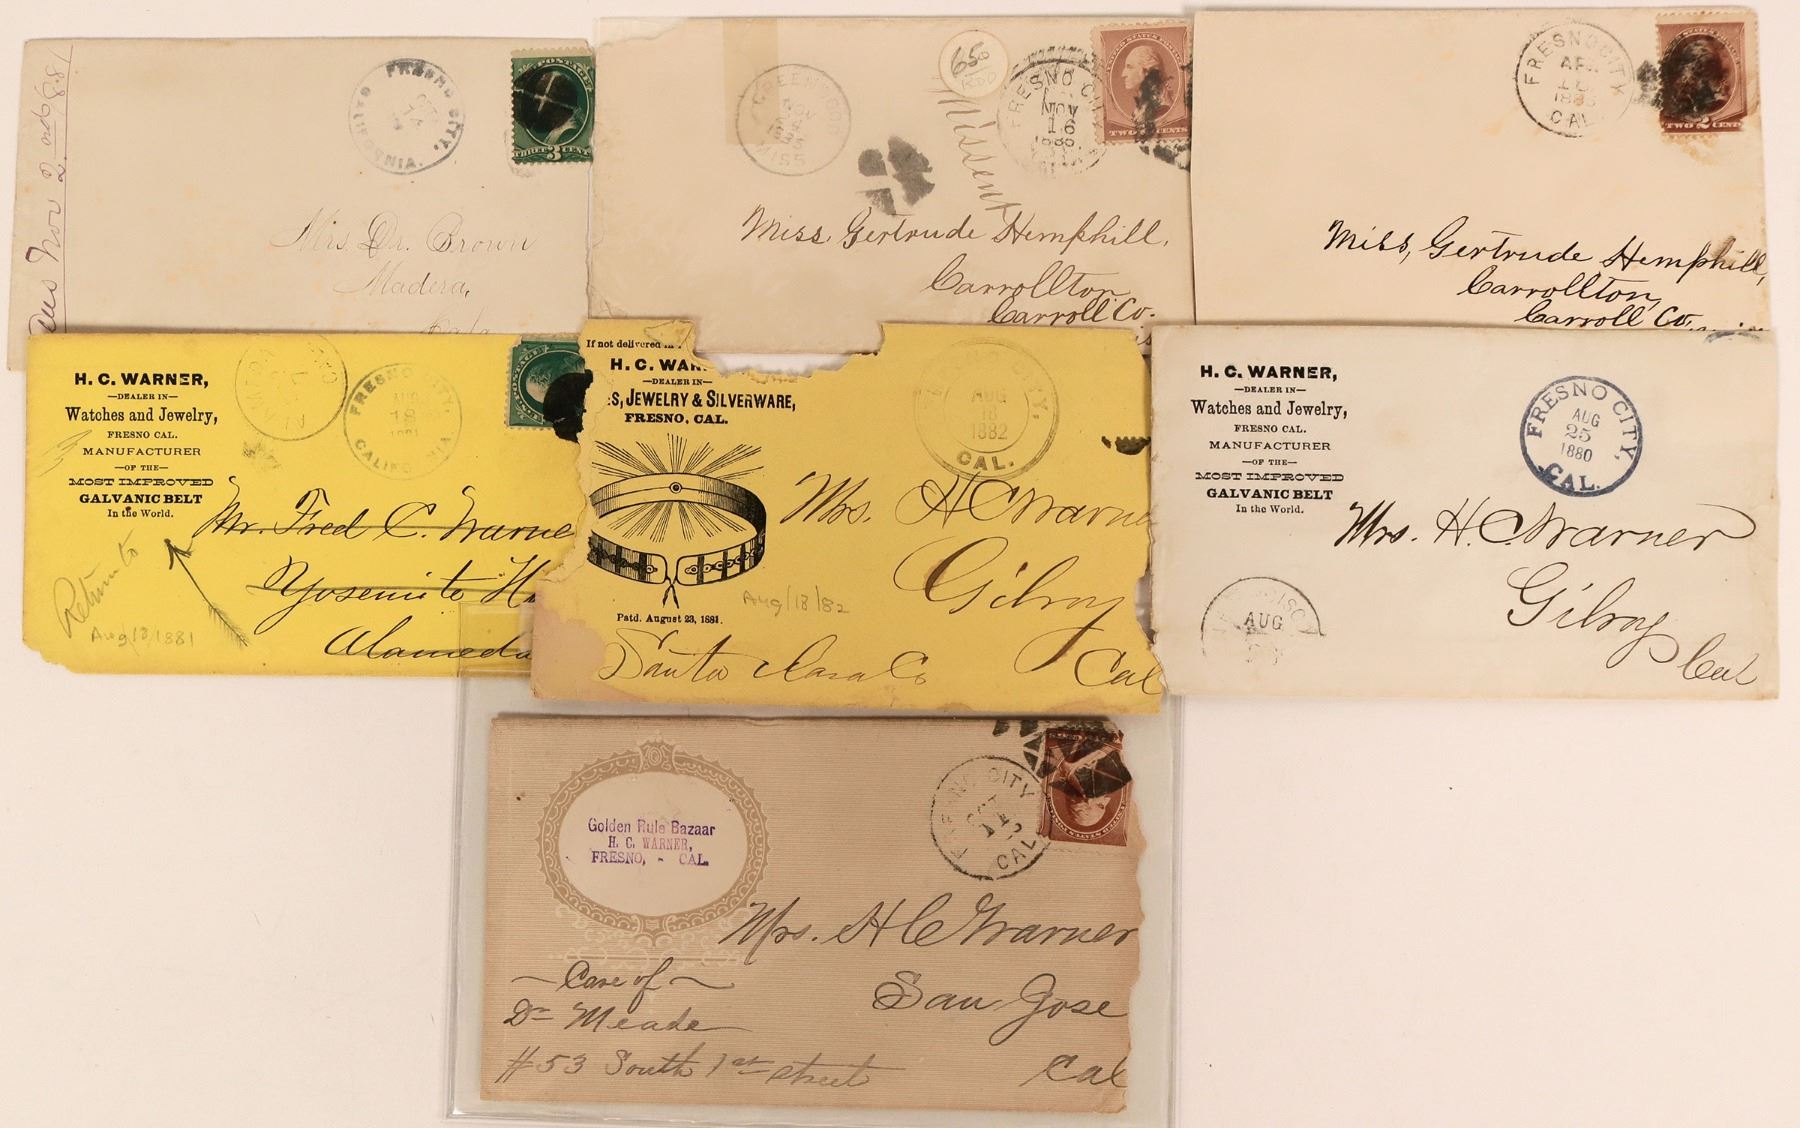 Nov 2nd 1881
FRESNO CITY,
OCT
CALIFORNIA.
U.S. POSTAGE
THREE 3 CENTS
Mrs. Dr. Brown
Madera,
Cala
GREENWOOD
NOV
MISS
65⁰
Missent
FRESNO CITY
NOV
16
1885
UNITED STATES POSTAGE
TWO CENTS
Miss, Gertrude Hemphill,
Carrollton,
Carroll Co.
Miss
FRESNO CITY
APR
18
1885
CAL.
TWO 2 CENTS
Miss, Gertrude Hemphill,
Carrollton,
Carroll Co.
H. C. WARNER,
—DEALER IN—
Watches and Jewelry,
FRESNO CAL.
MANUFACTURER
—OF THE—
MOST IMPROVED
GALVANIC BELT
In the World.
FRESNO CITY,
AUG
18
1881
CALIFORNIA
U.S. POSTAGE
Mr. Fred C. Warne
Yosemite H
Alameda
Return to
Aug/18/1881
If not delivered in
H. C. WAR
—DEALER IN—
S, JEWELRY & SILVERWARE,
FRESNO, CAL.
Patd. August 23, 1881.
CITY,
AUG
18
1882
CAL.
Mrs. H C Warne
Gilroy
Aug/18/82
Santa Clara Co
Cal
H. C. WARNER,
—DEALER IN—
Watches and Jewelry,
FRESNO CAL.
MANUFACTURER
—OF THE—
MOST IMPROVED
GALVANIC BELT
In the World.
FRESNO CITY,
AUG
25
1880
CAL.
Mrs. H. C. Warner
Gilroy
Cal
AUG
Golden Rule Bazaar
H. C. WARNER,
FRESNO, - CAL.
FRESNO CITY
OCT
11
CAL
Mrs. H C Warner
San Jose
Cal
~ Care of ~
Dr Meade
#53 South 1st street